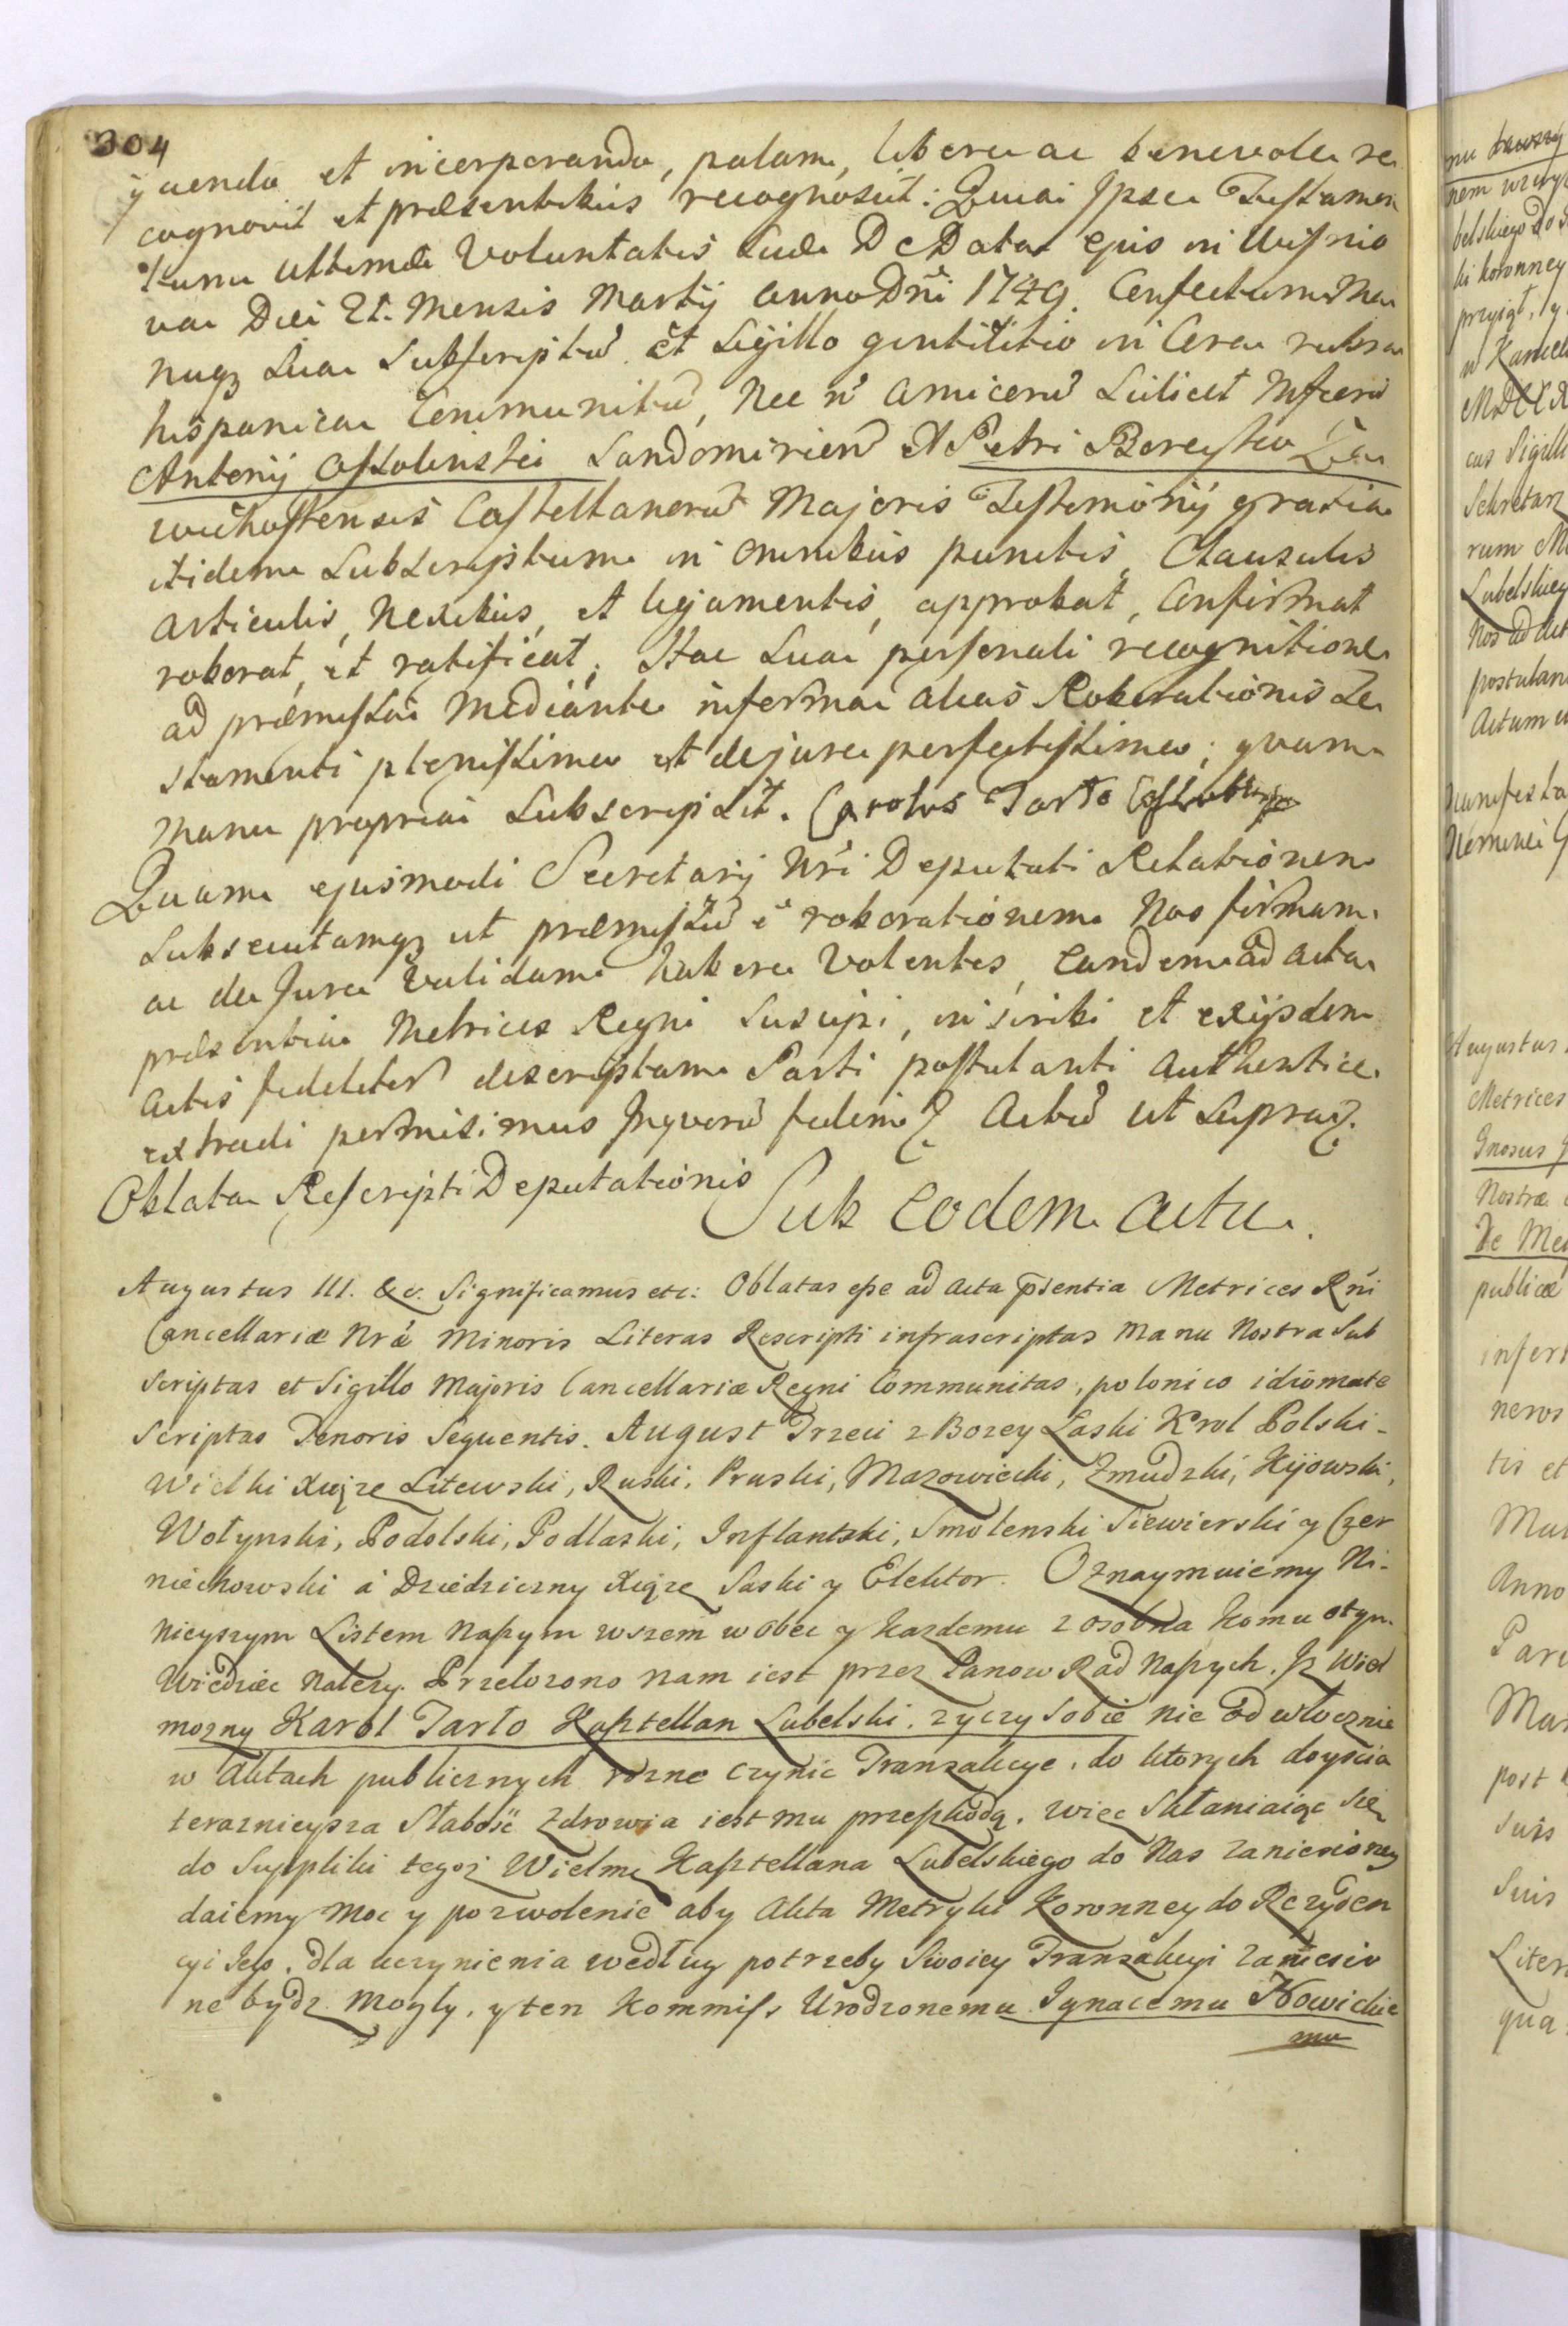 304
quendo et incorporando, palam, libere ac benevole re
cognovit et præsentibus recognoscit: Quia Ipse Testamen
tum Ultimæ Voluntatis Suæ De Data ejus in Wisnio
va Die 21. Mensis Martij Anno Dñi 1749. Confectum Ma
nuq3 Sua Subscriptũ et Sigillo gentilitio in Cera rubra
hispanica Communitũ, Nec ñ Amicorũ Scilicet Mfcorũ
Antonij Ossolinski Sandomirien et Petri Borejko Za
wichostensis Castellanorũ Majoris Testimonij gratia
itidem Subscriptum in omnibus punctis, Clausulis
articulis, Nexibus, et ligamentis, approbat, Confirmat
roborat, et ratificat. Hac Sua personali recognitione
ad præmissa Mediante in forma alias Roborationis Te
stamenti plenissima et de jure perfectissima; quam
manu propria Subscripsit. Carolus Tarło
Quam ejusmodi Secretarij Nri Deputati Relationem
Subsecutamq3 ut præmissũ ẽ roborationem Nos firmam
ac de Jure Validam habere Volentes, Eandem ad Acta
præsentia Metrices Regni Suscipi, inscribi et exijsdem
Actis fideliter descriptam Parti postulanti Authentice
extradi permisimus Inquorũ fidem Actũ ut Supra.
Oblata Rescripti Deputationis
Sub eodem actu.
Augustus III. &c. Significamus etc: Oblatas esse ad acta p̃sentia Metrices Rñi
Cancellariæ Nræ Minoris Literas Rescripti infrascriptas Manu Nostra Sub
Scriptas et Sigillo Majoris Cancellariæ Regni Communitas, polonico idiomate
Scriptas Tenoris Sequentis. August Trzeci z Bozey Łaski Krol Polski-
Wielki Xiąze Litewski, Ruski, Pruski, Mazowiecki, Zmudzki, Kijowski,
Wołynski, Podolski, Podlaski, Inflantski, Smolenski Siewierski y Czer
niechowski á Dziedziczny Xiąze Saski y Elektor. Oznaymuiemy Ni-
nieyszym Listem Naszym wszem wobec y kazdemu z osobna komu o tym
Wiedziec nalezy. Przelozono nam iest przez Panow Rad Naszych. Iz Wiel
mozny Karol Tarło Kasztellan Lubelski. zyczy Sobie nie odwłocznie
w Aktach publicznych rozne czynic Tranzakcye, do ktorych doyscia
teraznieysza Słabość Zdrowia iest mu przeszkodą. więc Skłaniaiąc Się
do Suppliki tegoz Wielm Kasztellana Lubelskiego do Nas zaniesioney
daiemy Moc y pozwolenie aby Akta Metryki Koronney do Rezyden
cyi Jego. dla uczynienia według potrzeby Swoiey Tranzakcyi zaniesio
ne bydz mogły. y ten Kommiss Urodzonemu Ignacemu Nowickie
mu